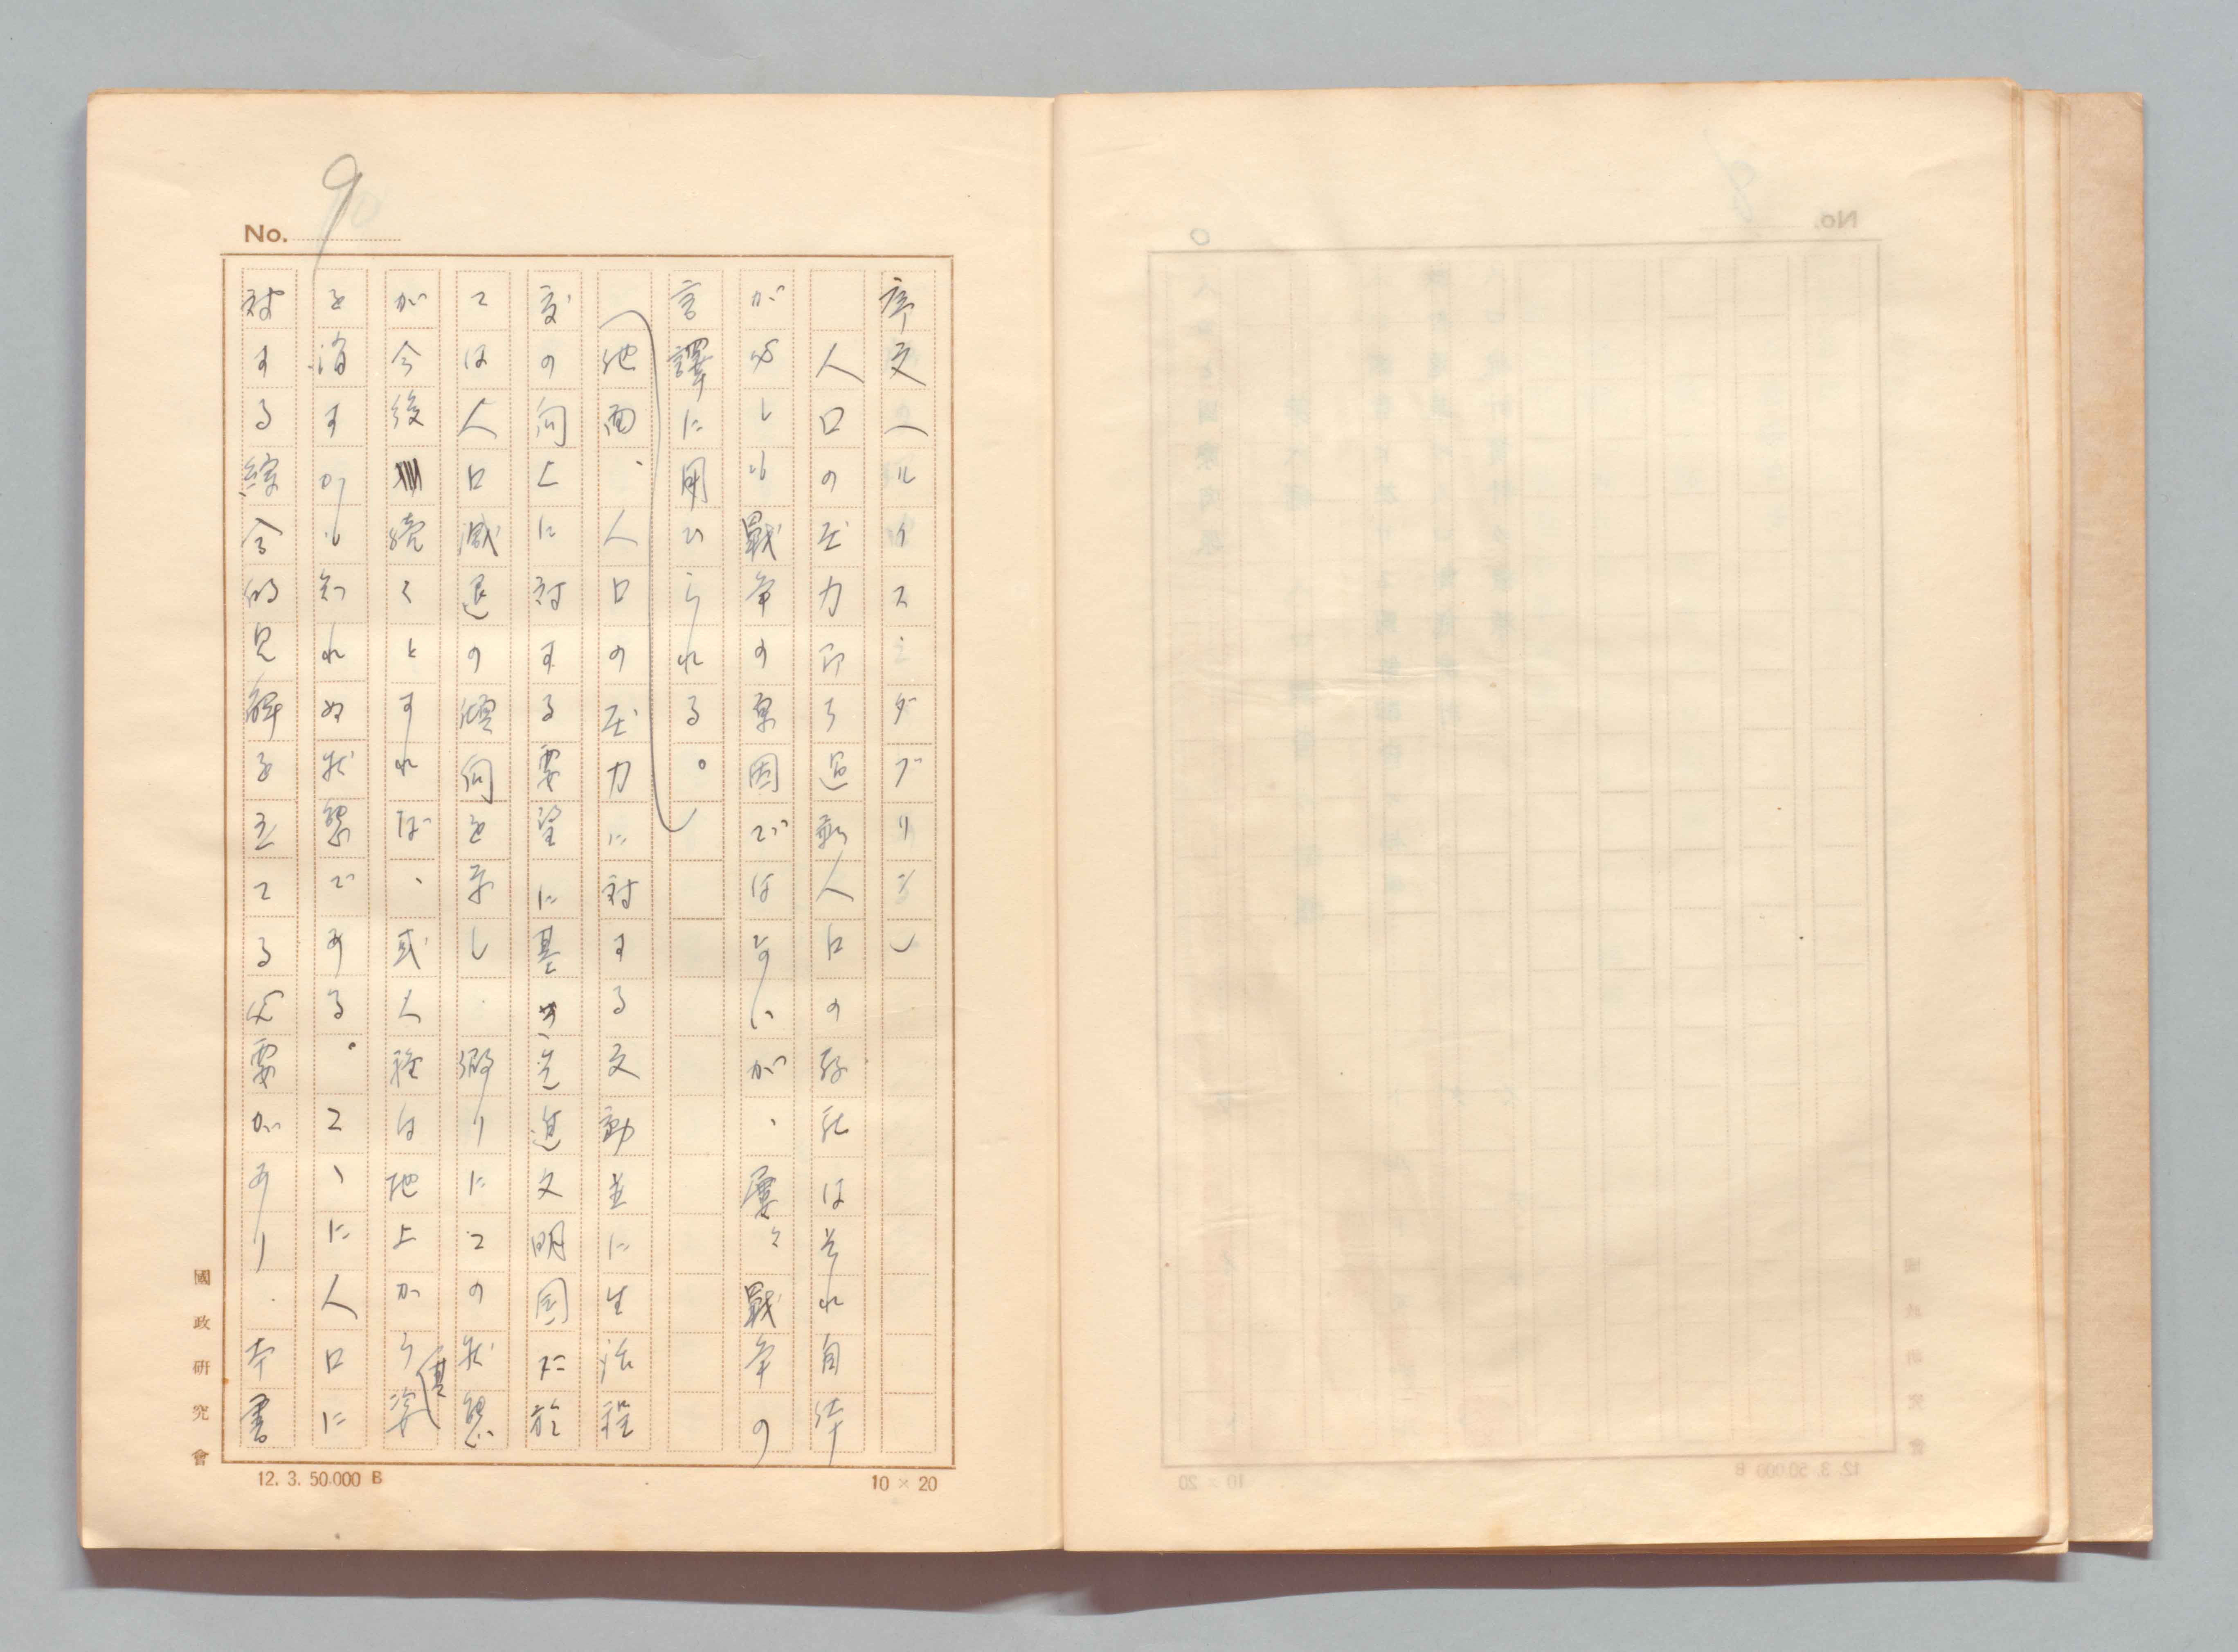 No. 9
序文(ルイス ダブリン)
人口の圧力即ち過剰人口の存在はそれ自体
が必しも戰争の原因ではないが、屡々戰争の
言譯に用ひられる。
他面、人口の圧力に対する反動並に生活程
度の向上に対する要望に基き先進文明国に於
ては人口減退の傾向を示し 假りにこの状態
が今後続くとすれば、或人種は地上から其姿
を消すかも知れぬ状態である。こゝに人口に
対する綜合的見解を立てる必要があり 本書
國政研究會
12. 3. 50.000 B
10 × 20